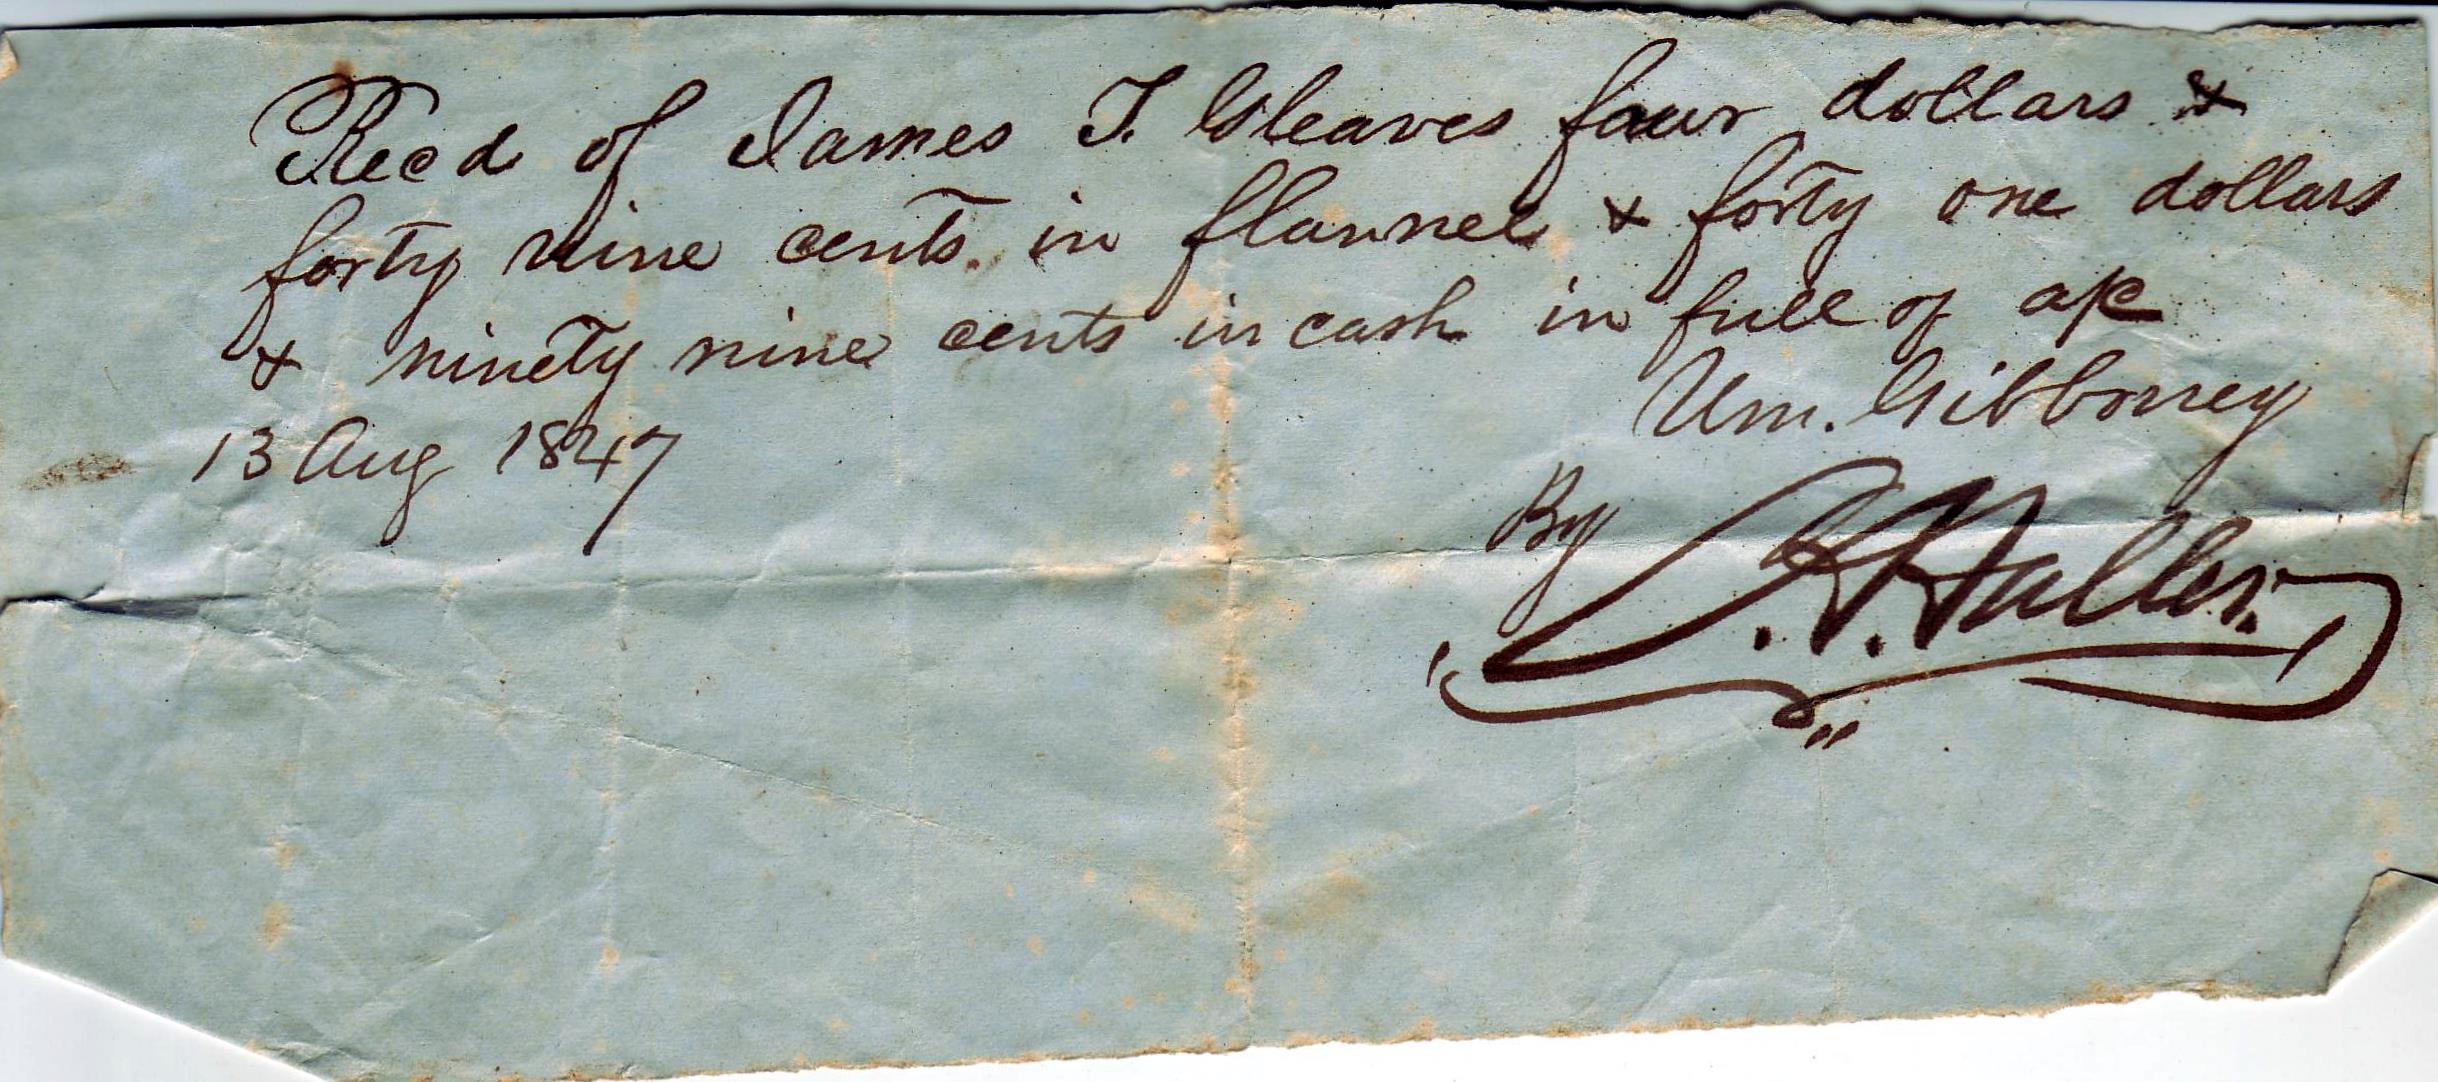 Recd of James T. Gleaves four dollars &
forty nine cents in flannel & forty one dollars
& ninety nine cents in cash in full of a/c
13 Aug 1847
Wm. Gibboney
By